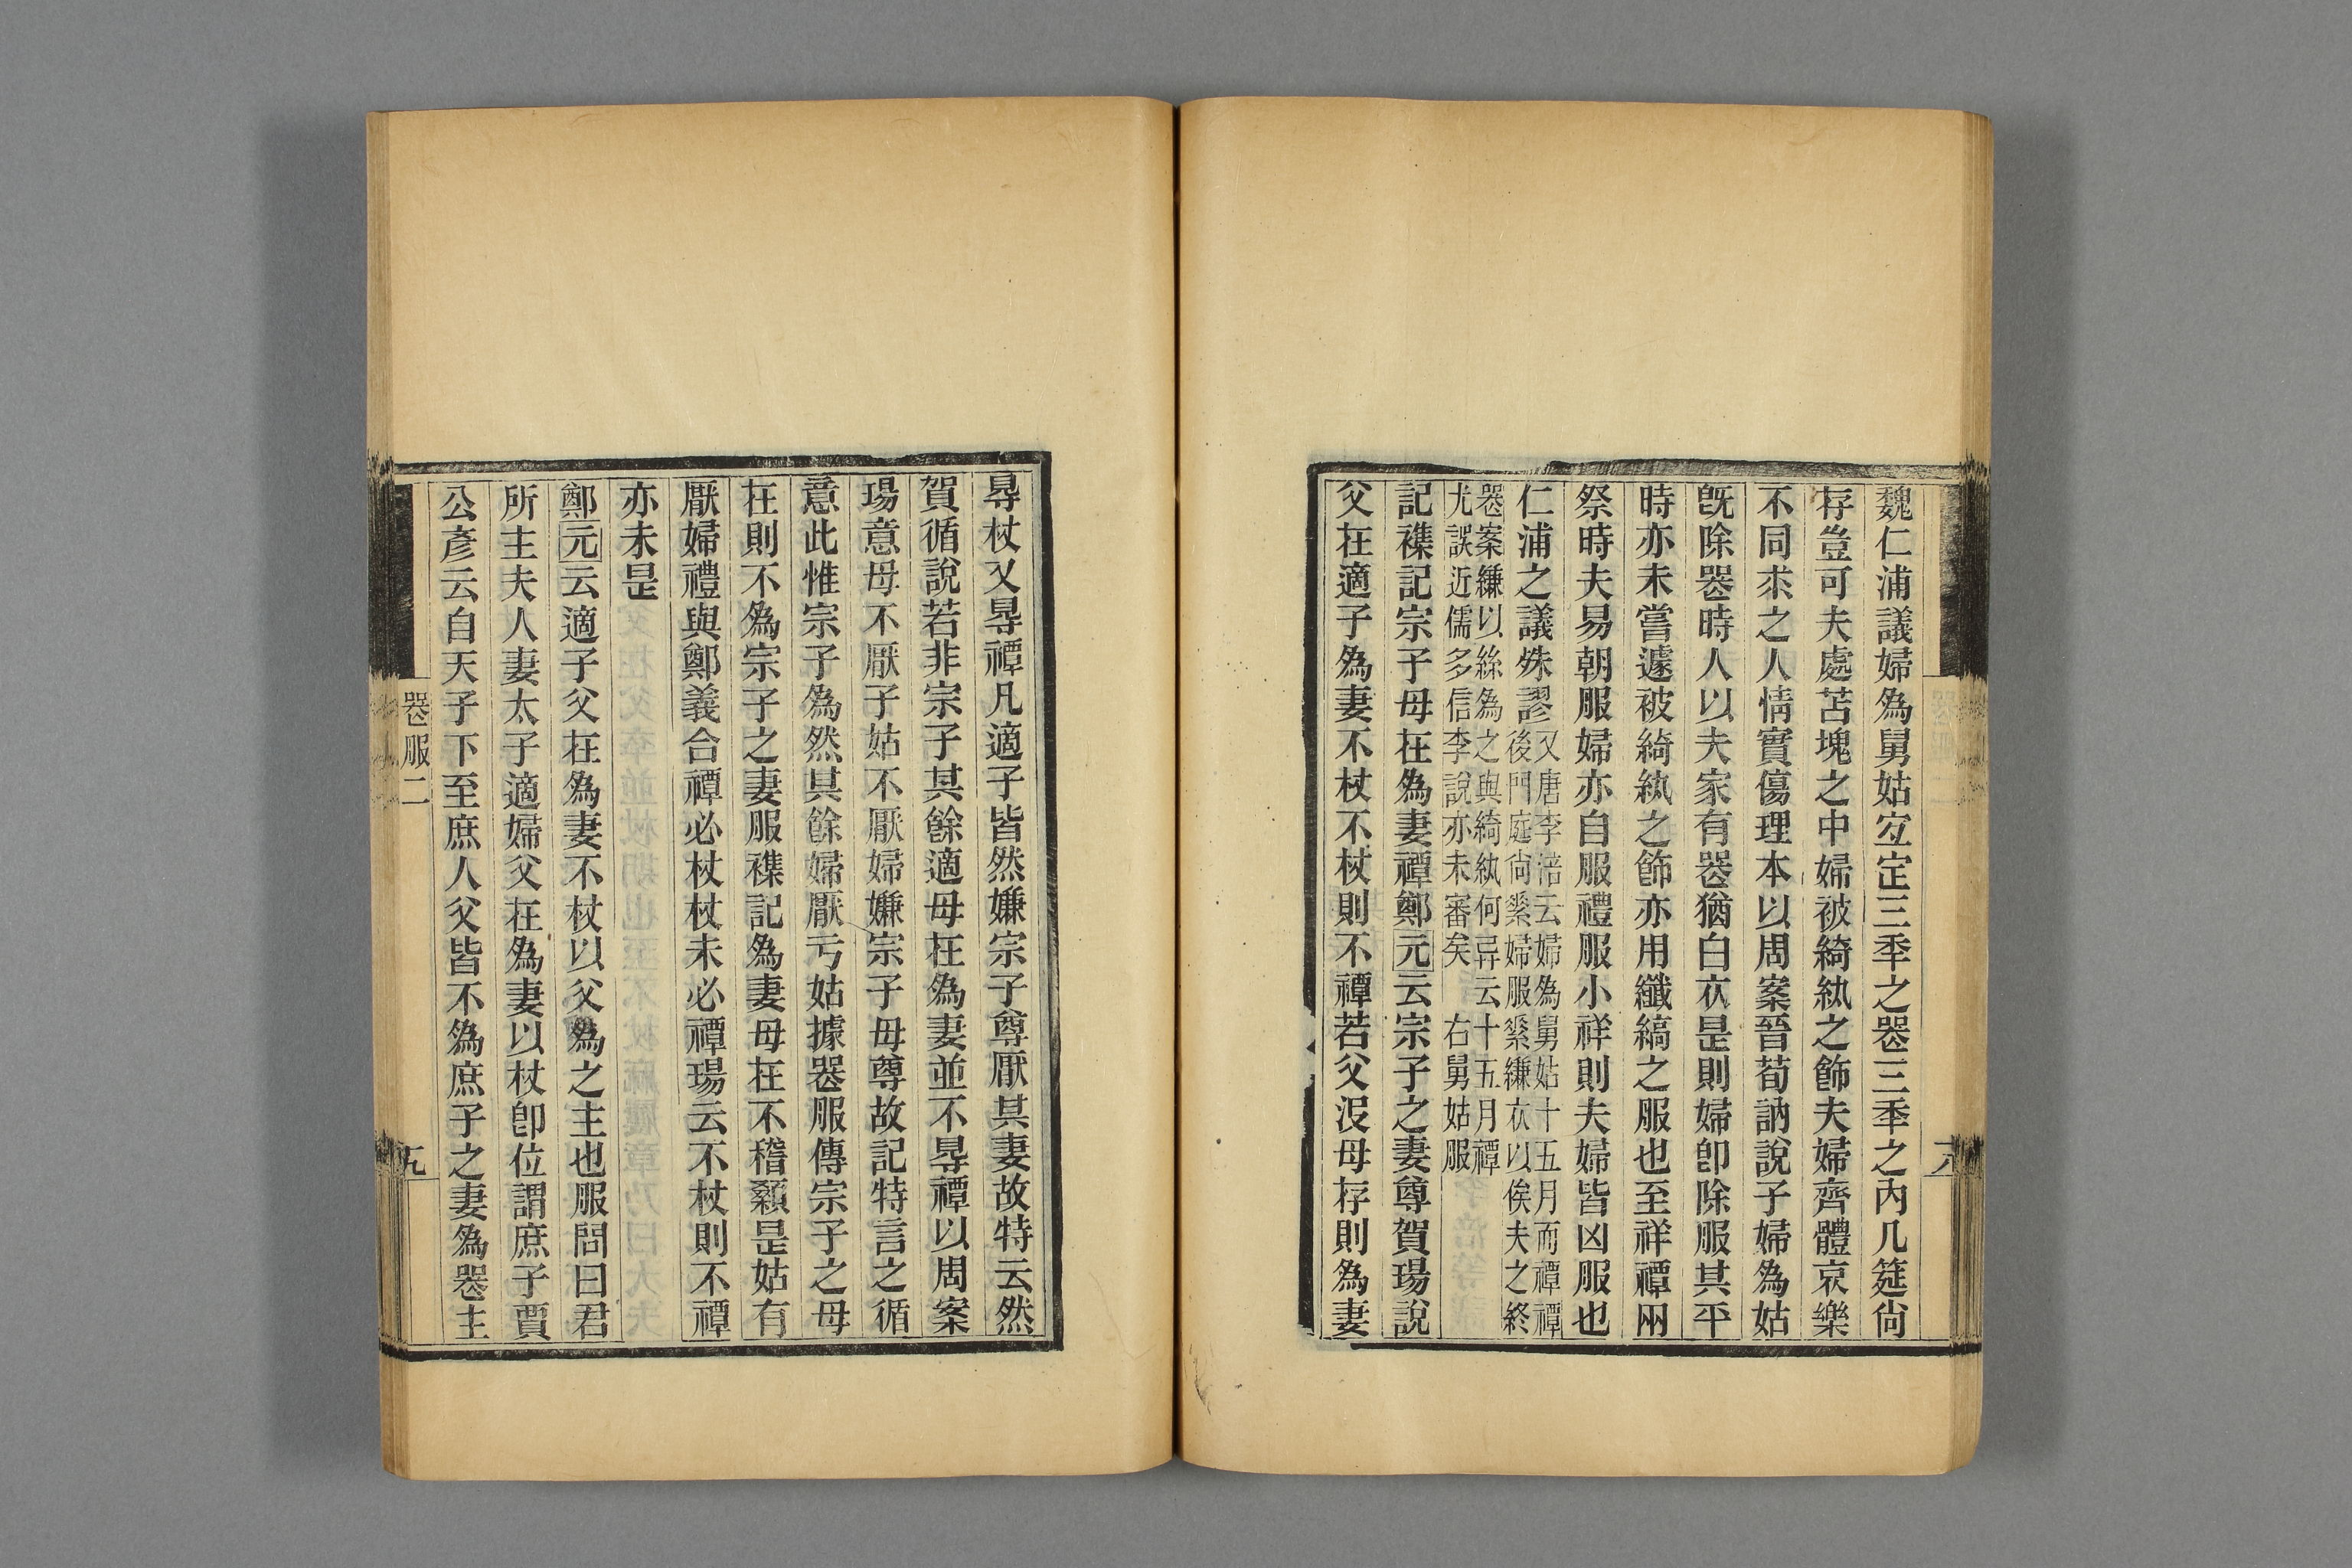 魏仁浦議婦為舅姑宜定三秊之喪三秊之內几筵尙
存豈可夫處苫塊之中婦被綺紈之飾夫婦齊體哀樂
不同求之人情實傷理本以周案晉荀訥說子婦為姑
旣除喪時人以夫家有喪猶白衣是則婦卽除服其平
時亦未嘗遽被綺紈之飾亦用纖縞之服也至祥禫兩
祭時夫易朝服婦亦自服禮服小祥則夫婦皆凶服也
仁浦之議殊謬又唐李涪云婦為舅姑十五月而禫禫
後門庭尙素婦服素縑衣以俟夫之終
喪案縑以絲為之與綺紈何异云十五月禫
尤誤近儒多信李說亦未審矣 右舅姑服
記襍記宗子母在為妻禫鄭元云宗子之妻尊賀瑒說
父在適子為妻不杖不杖則不禫若父沒母存則為妻
㝵杖又㝵禫凡適子皆然嫌宗子尊厭其妻故特云然
賀循說若非宗子其餘適母在為妻並不㝵禫以周案
瑒意母不厭子姑不厭婦嫌宗子母尊故記特言之循
意此惟宗子為然其餘婦厭亏姑據喪服傳宗子之母
在則不為宗子之妻服襍記為妻母在不稽顙是姑有
厭婦禮與鄭義合禫必杖杖未必禫瑒云不杖則不禫
亦未是
鄭元云適子父在為妻不杖以父為之主也服問曰君
所主夫人妻太子適婦父在為妻以杖卽位謂庶子賈
公彥云自天子下至庶人父皆不為庶子之妻為喪主
喪服二
五